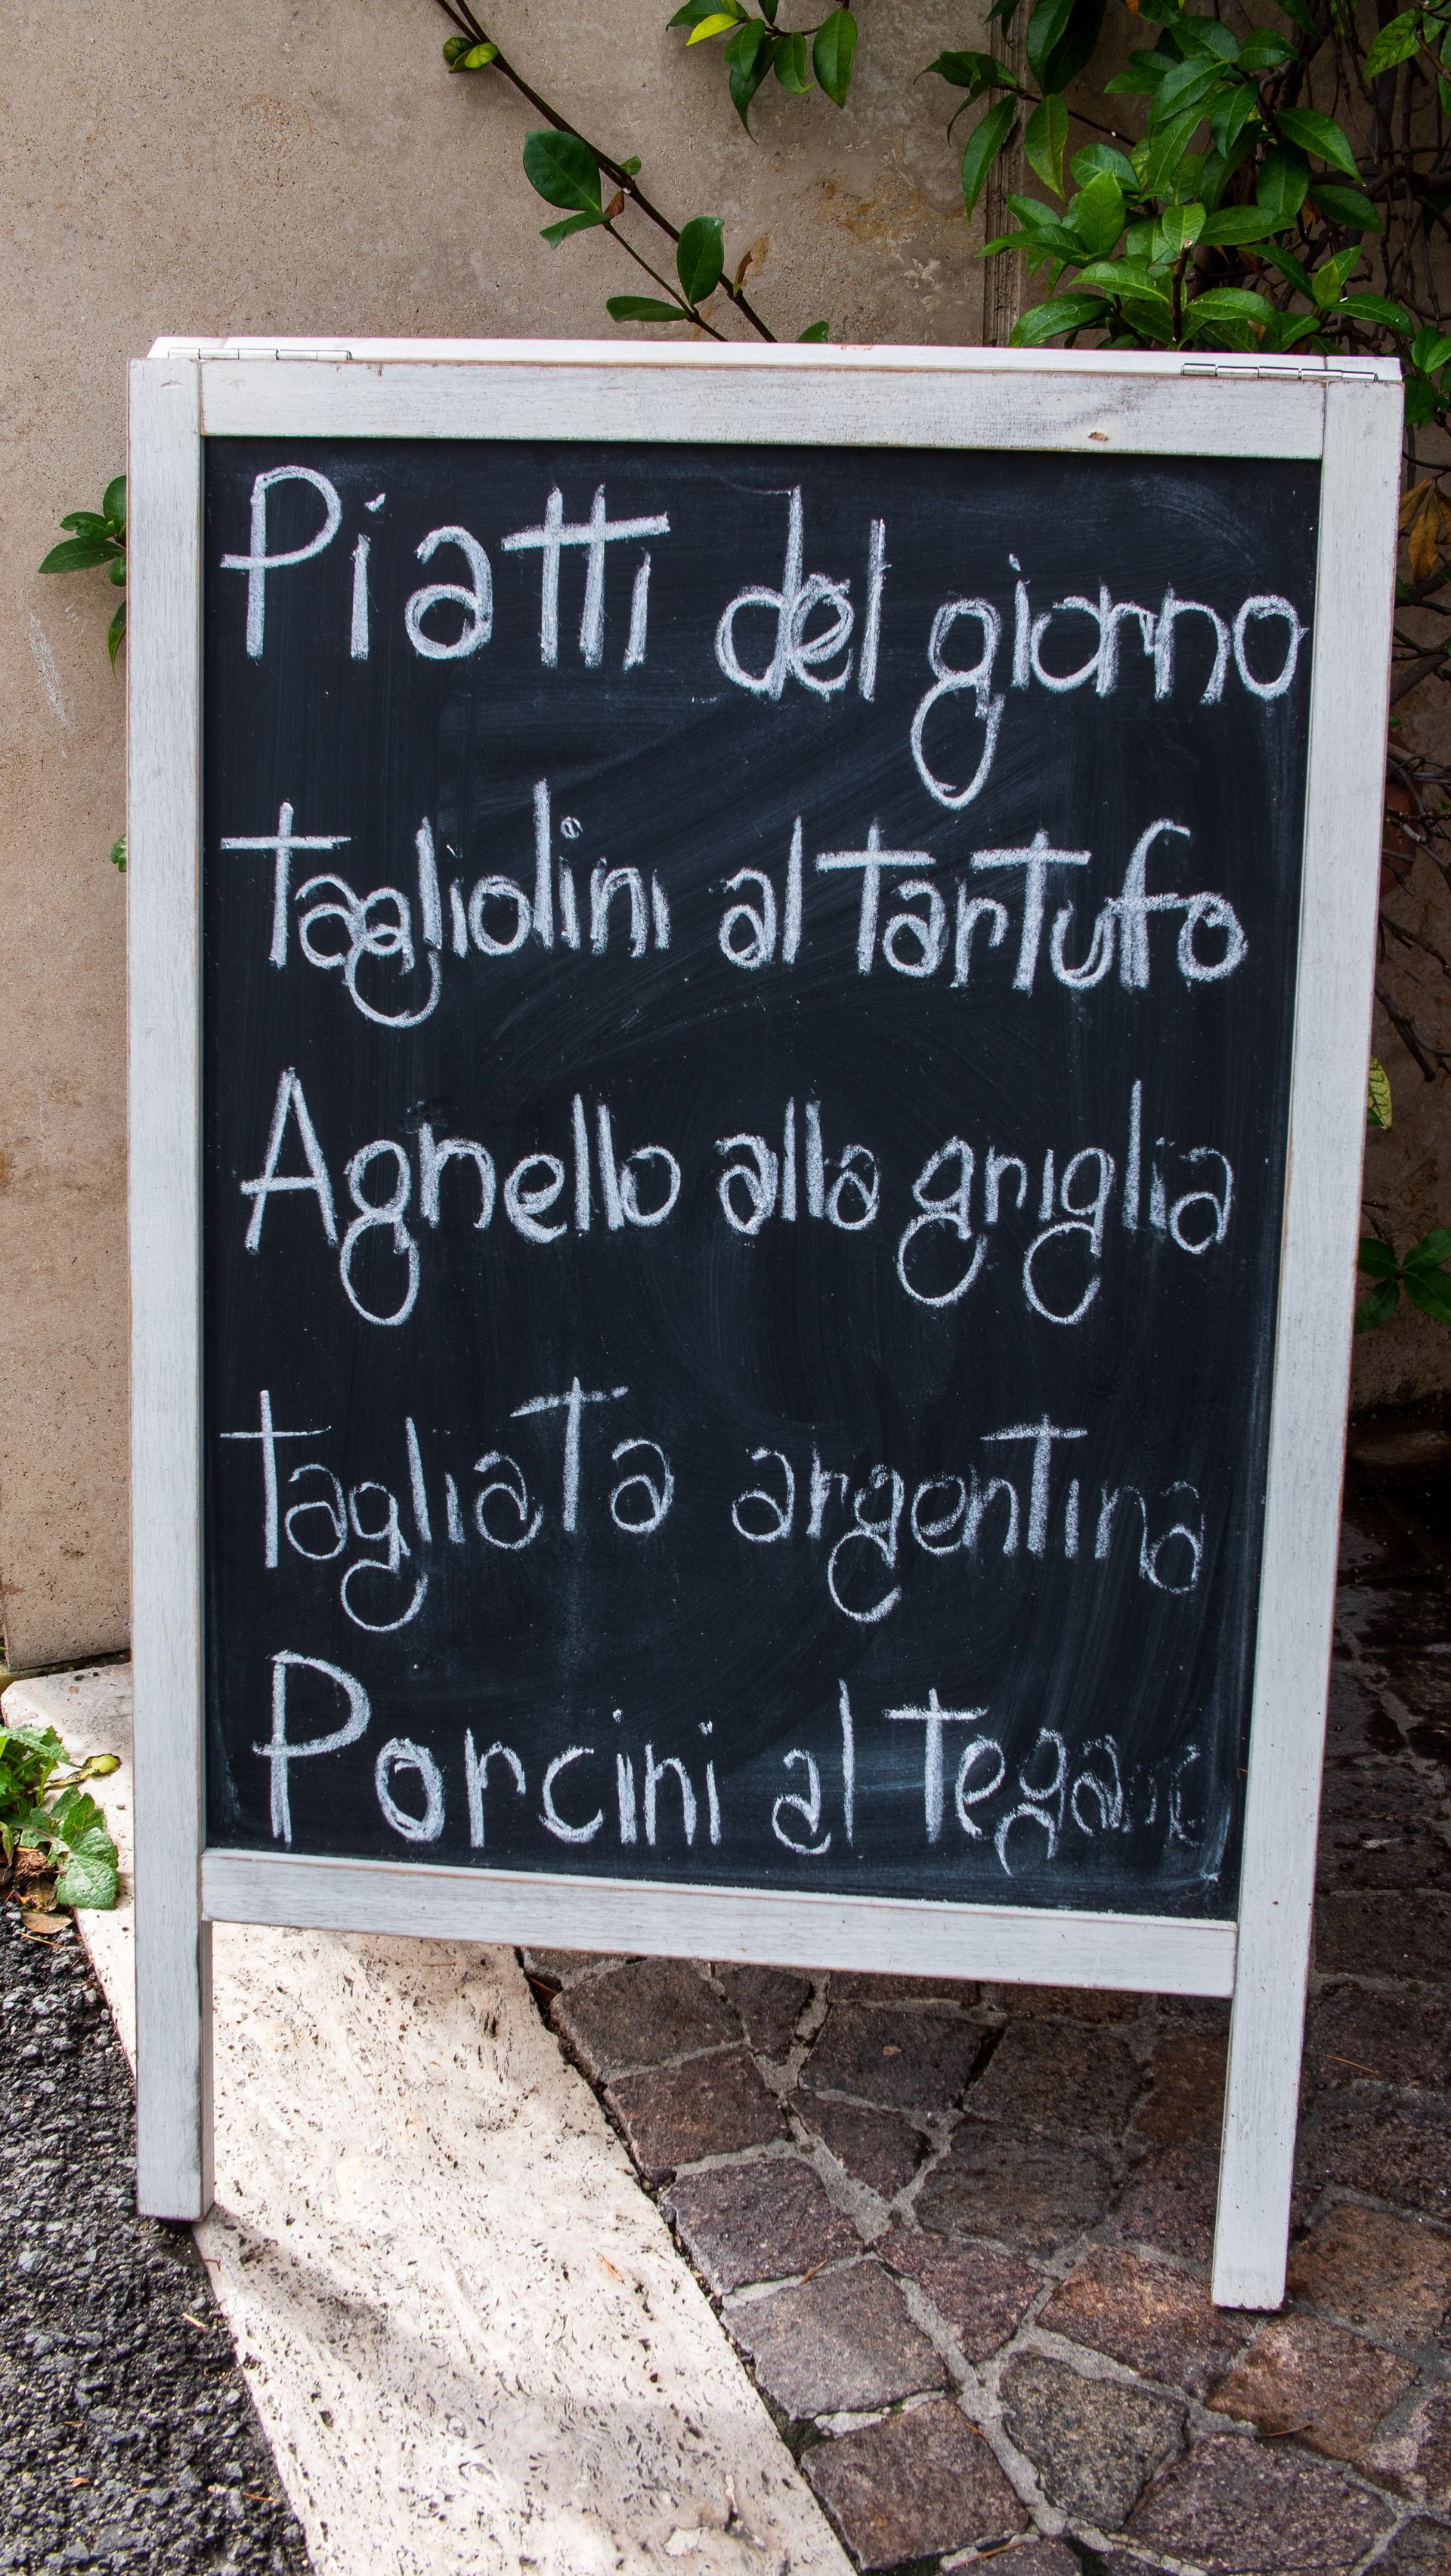 Piatti del giorno
Tagliolini al tartufo
Agnello alla griglia
Tagliata argentina
Porcini al tegame